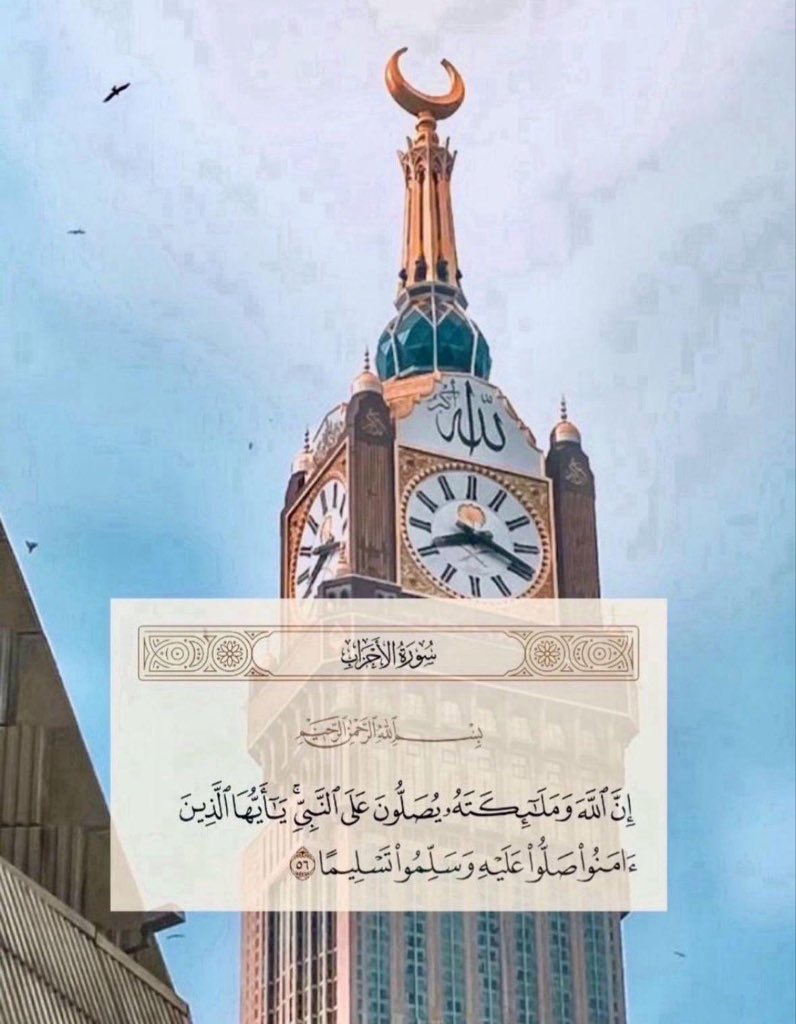 الله أكبر
سُورَةُ الأَحْزَابِ
بِسْمِ ٱللَّهِ ٱلرَّحْمَٰنِ ٱلرَّحِيمِ
إِنَّ ٱللَّهَ وَمَلَٰٓئِكَتَهُۥ يُصَلُّونَ عَلَى ٱلنَّبِيِّۚ يَٰٓأَيُّهَا ٱلَّذِينَ
ءَامَنُوا۟ صَلُّوا۟ عَلَيْهِ وَسَلِّمُوا۟ تَسْلِيمًا ٥٦